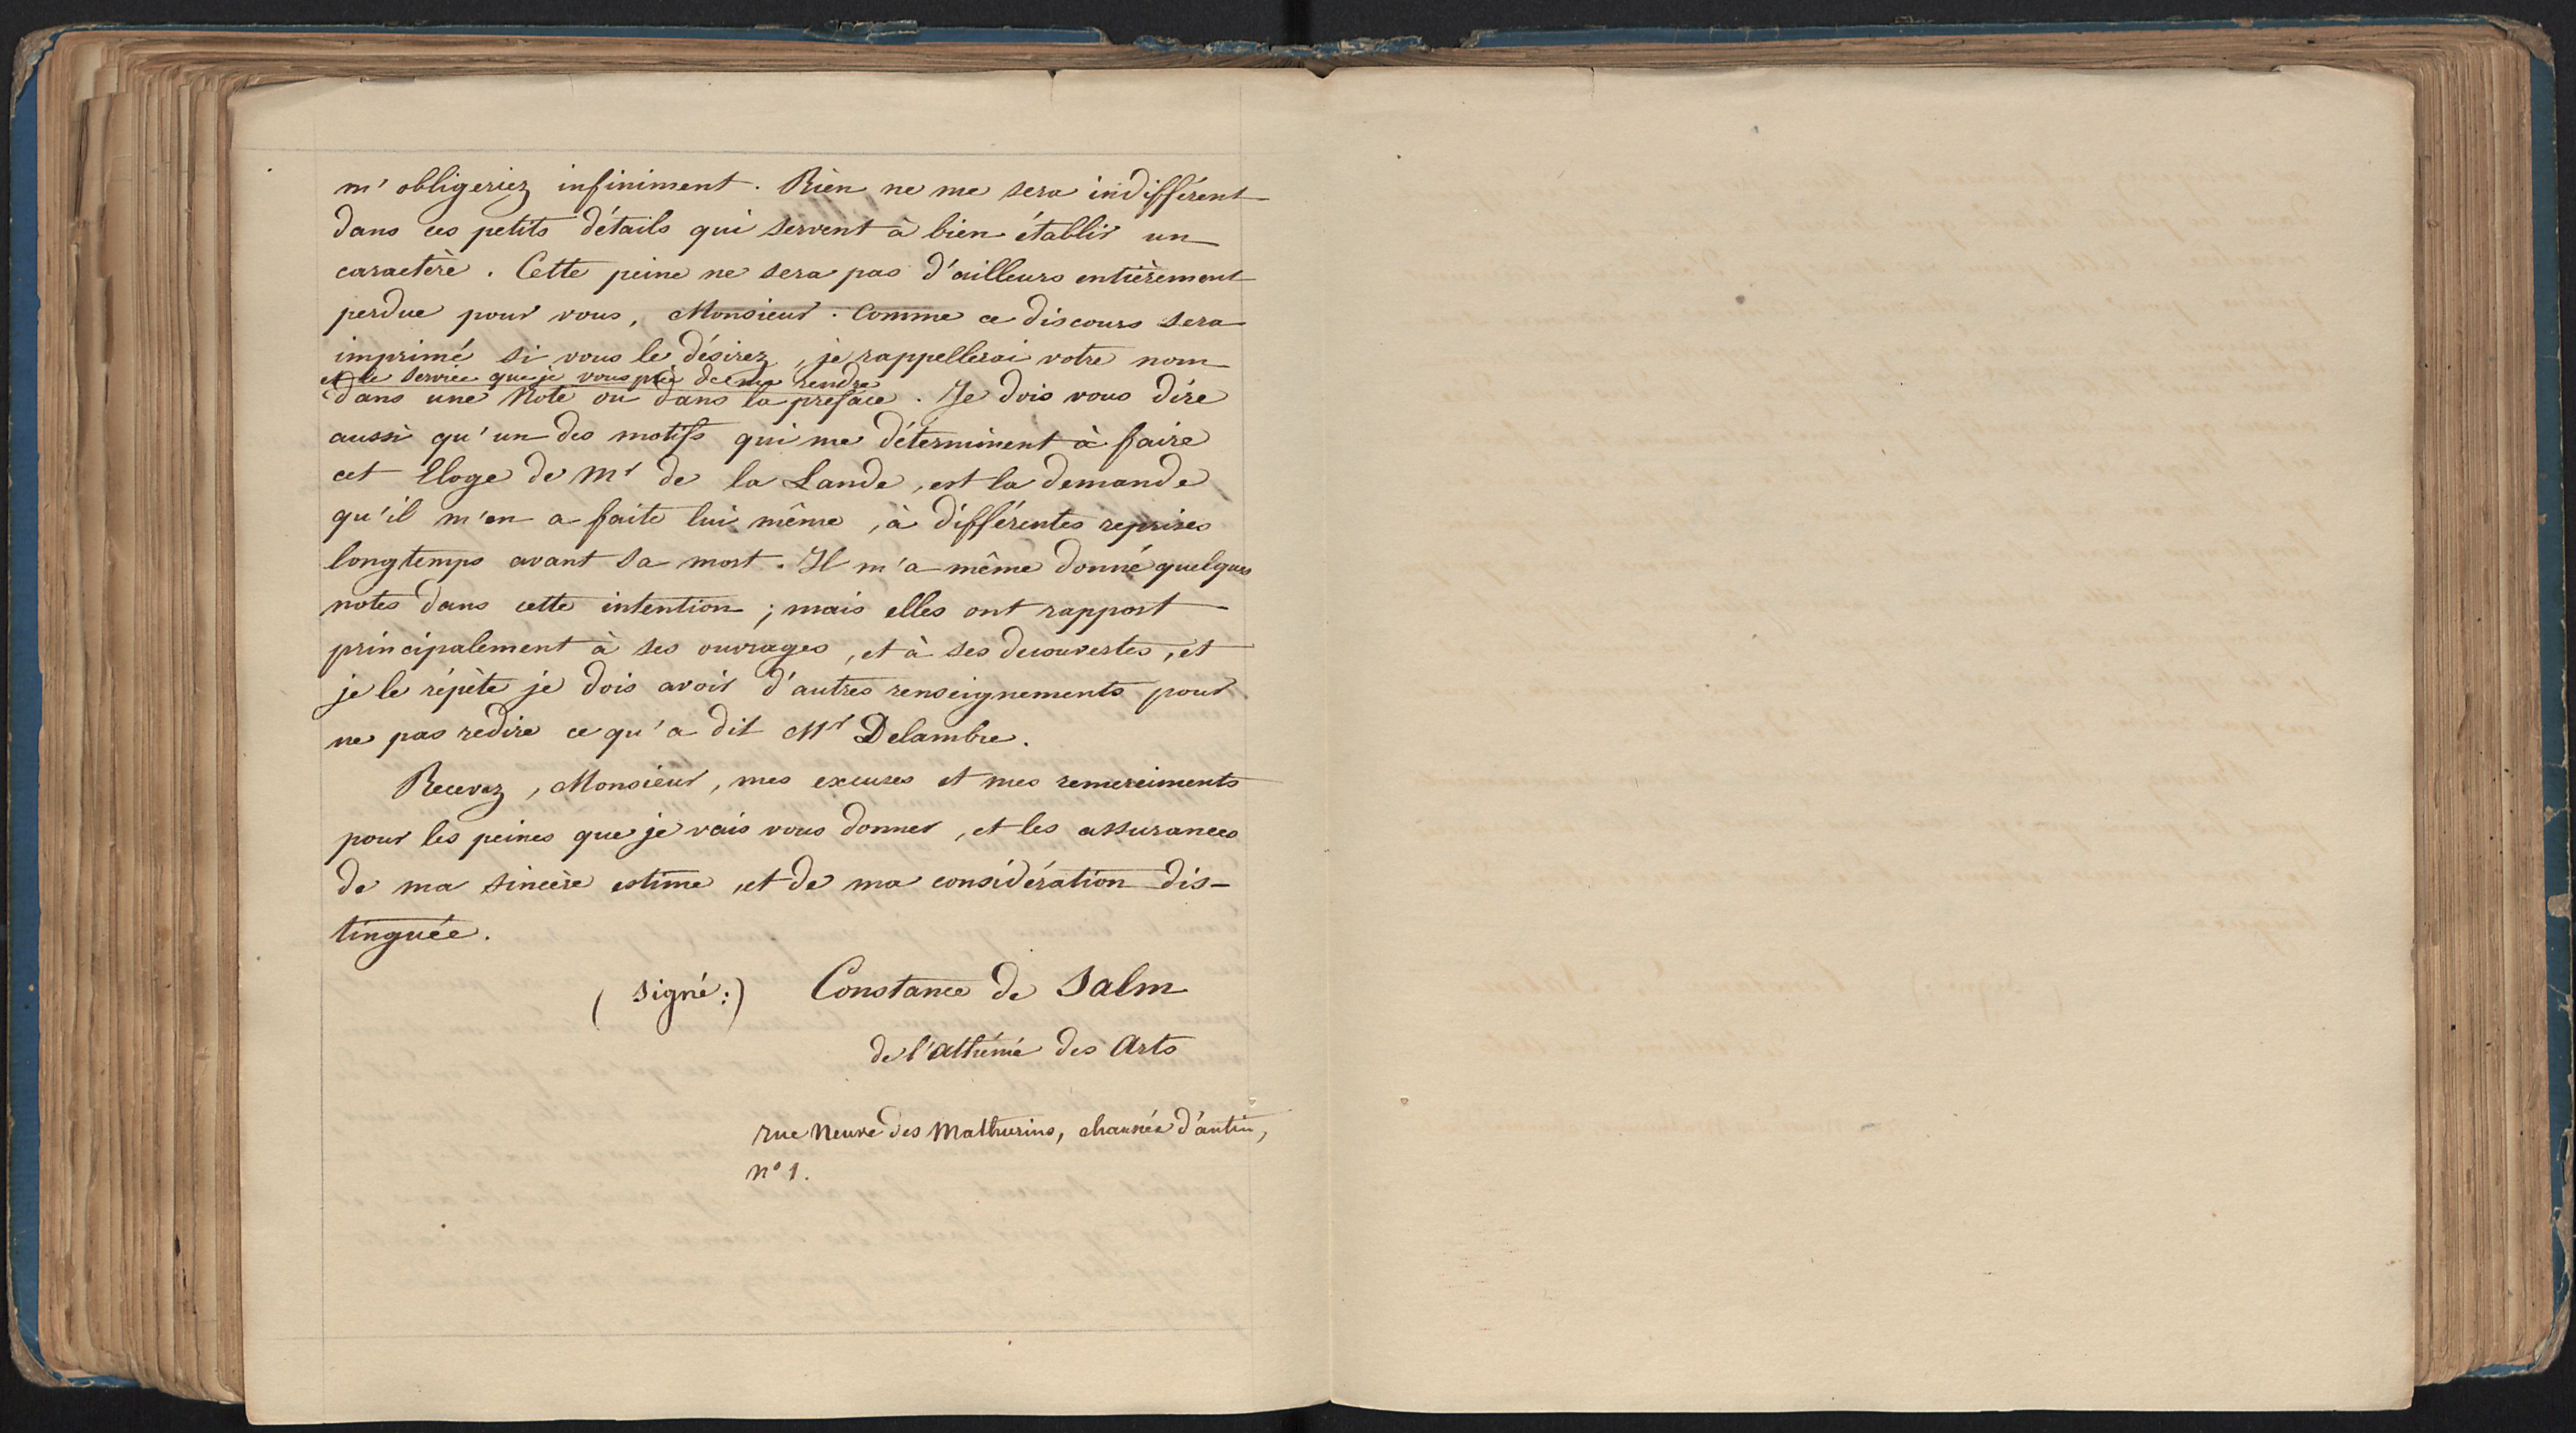 m'obligeriez infiniment. Rien ne me sera indifférent
dans ces petits détails qui servent à bien établir un
caractère. Cette peine ne sera pas d'ailleurs entièrement
perdue pour vous, Monsieur. Comme ce discours sera
imprimé si vous le désirez, je rappellerai votre nom
et le service que je vous prie de me rendre
dans une Note ou dans la preface. Je dois vous dire
aussi qu'un des motifs qui me déterminent à faire
cet Eloge de Mr de la Lande, est la demande
qu'il m'en a faite lui même, à différentes reprises
longtemps avant sa mort. Il m'a même donné quelques
notes dans cette intention; mais elles ont rapport
principalement à ses ouvrages, et à ses decouvertes, et
je le répète je dois avoir d'autres renseignements pour
ne pas redire ce qu'a dit Mr Delambre.
Recevez, Monsieur, mes excuses et mes remerciments
pour les peines que je vais vous donner, et les assurances
de ma sincère estime, et de ma considération dis-
tinguée.
(signé:) Constance de Salm
de l'athénée des Arts
rue Neuve des Mathurins, chaussée d'antin,
n° 1.